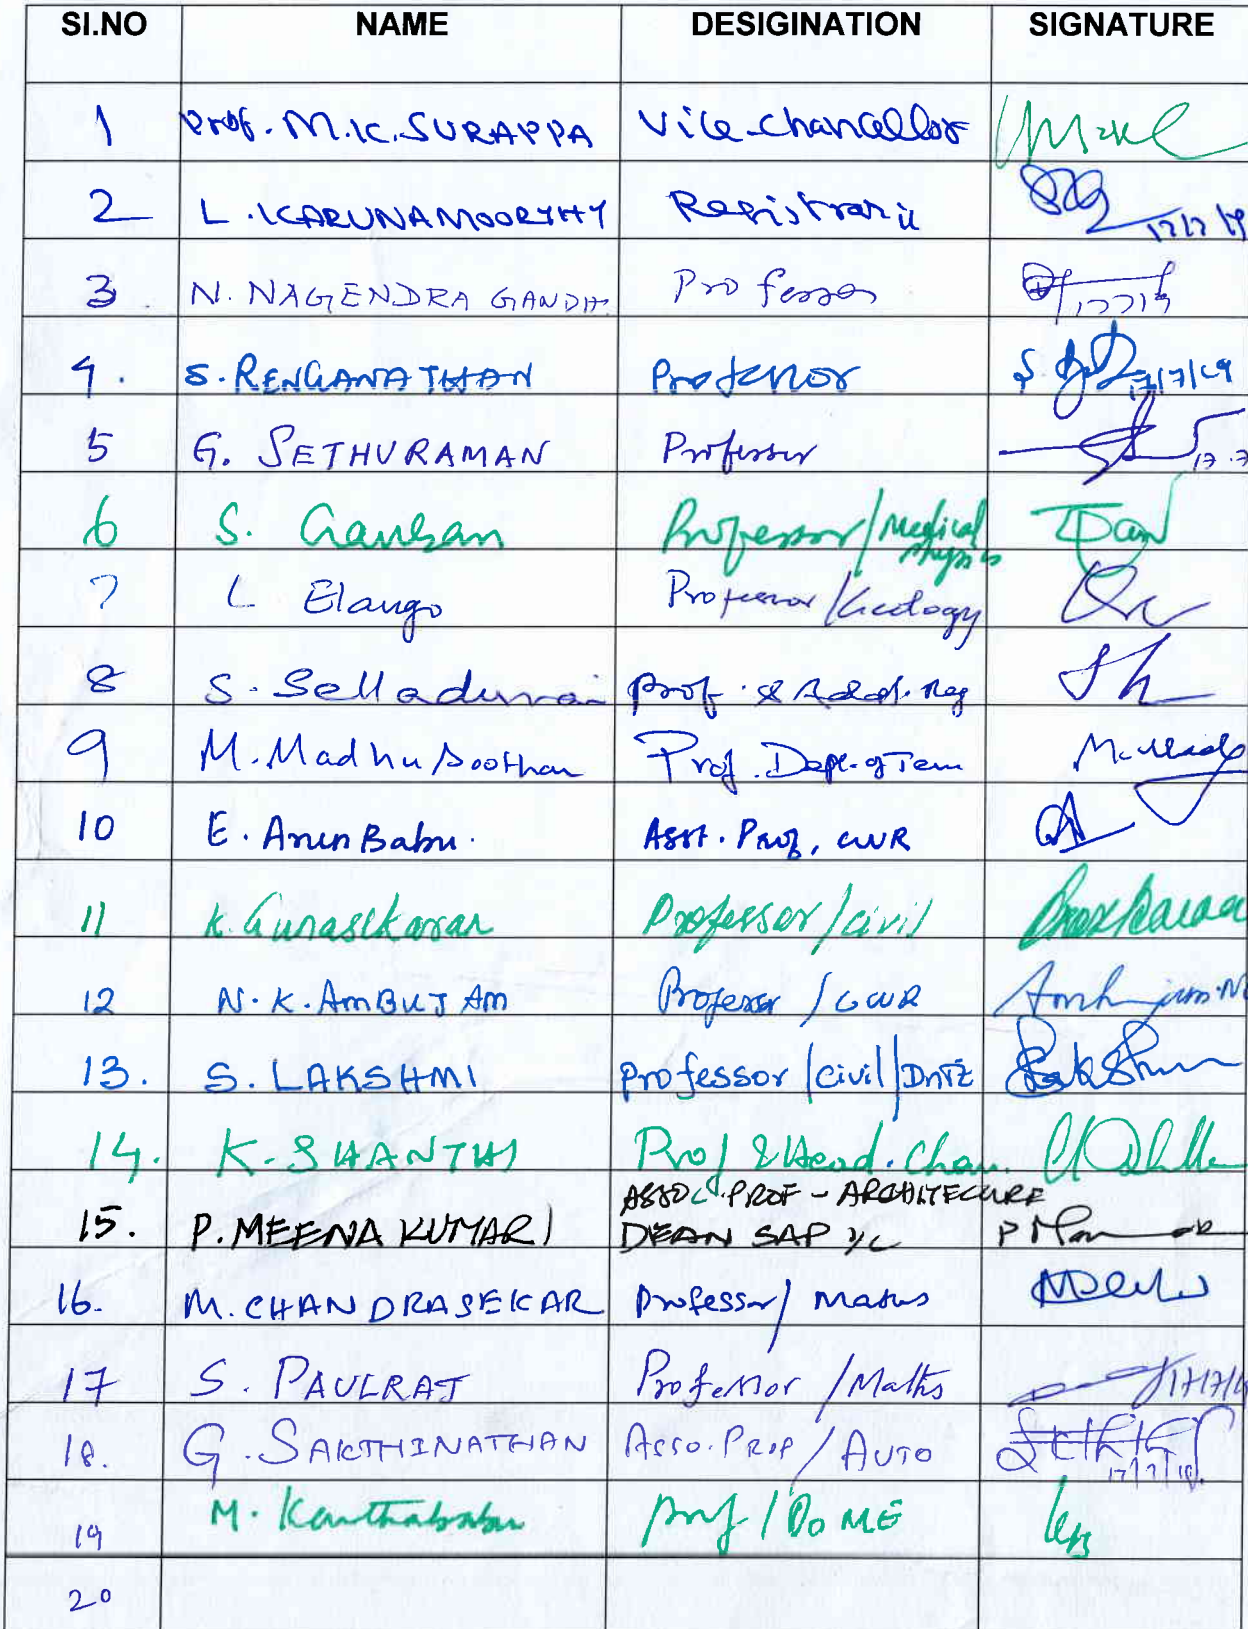 SI.NO NAME DESIGINATION SIGNATURE
1 Prof. M.K. SURAPPA Vice-Chancellor
2 L. KARUNAMOORTHY Registrar i/c 17/7/19
3 N. NAGENDRA GANDHI Professor 17719
4. S. RENGANATHAN Professor S. 17/7/19
5 G. SETHURAMAN Professor 17.7
6 S. Ganesan Professor/Medical Physics
7 L Elango Professor/Geology
8 S. Selladurai Prof. & Addl. Reg
9 M. Madhusoothan Prof. Dept. of Tam
10 E. Arun Babu. Asst. Prof, CWR
11 K. Gunasekaran Professor/Civil
12 N. K. AMBUJAM Professor / CWR
13. S. LAKSHMI Professor/Civil/
14. K. SHANTHI Prof & Head. Chem.
ASSOC. PROF - ARCHITECURE
15. P. MEENA KUMARI DEAN SAP i/c
16. M. CHANDRASEKAR Professor/Maths
17 S. PAULRAJ Professor /Maths 17/7/19
18. G. SAKTHINATHAN Asso. Prof / AUTO 17/7/19.
19 M. Kanthababu Prof / DoME
20